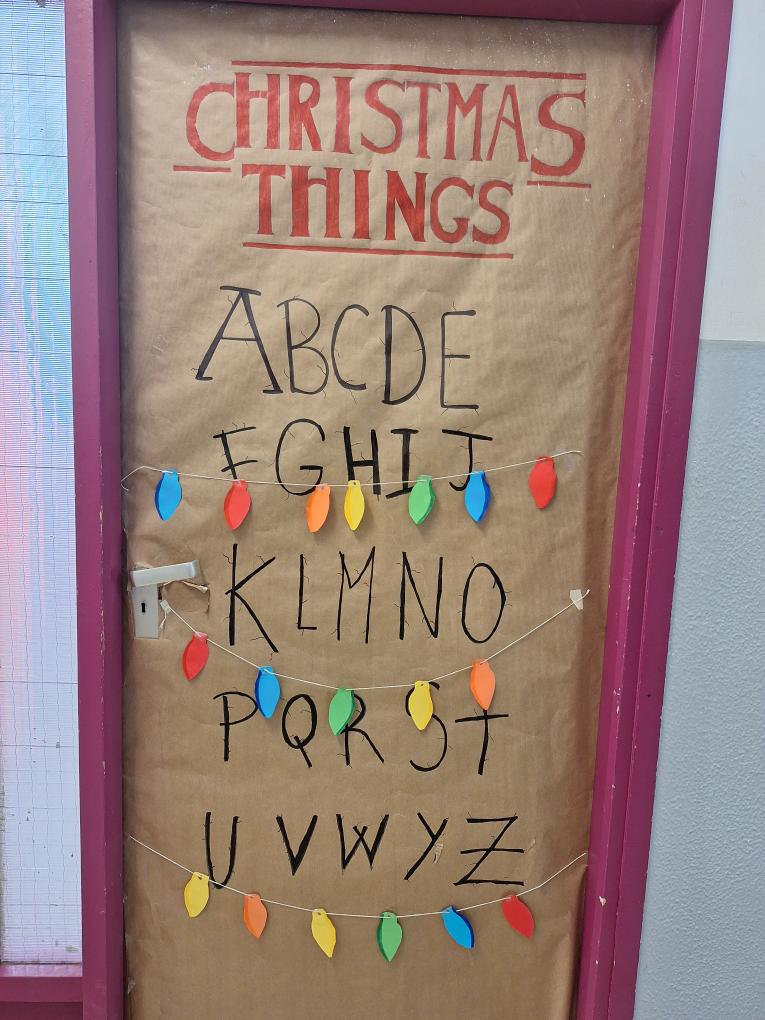 CHRISTMAS
THINGS
ABCDE
FGHIJ
KLMNO
PQRST
UVWYZ